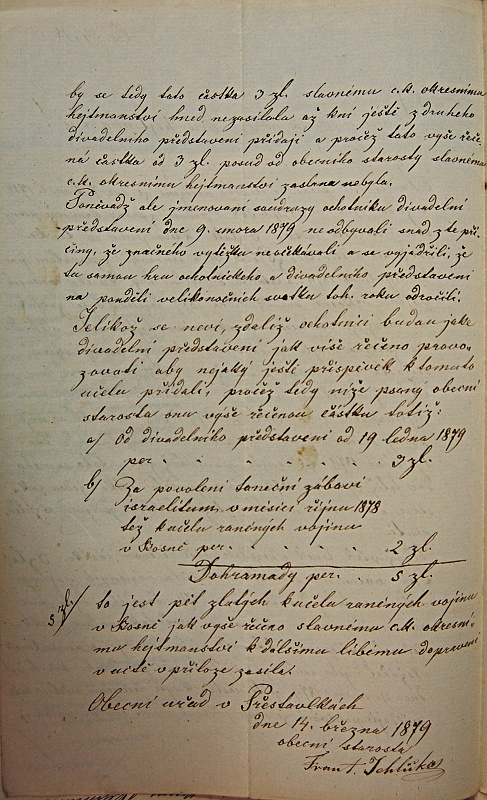 by se tedy tato částka 3 zl. slavnému c.k. okresnímu
hejtmanství hned nezasílala až kní ještě zdruheho
divadelního představení přidají a pročež táto vyše řeče-
ná částka od 3 zl. posud od obecního starosty slavnému
c.k. okresnímu hejtmanství zaslana nebyla.
Ponivadž ale jmenovaní soudruzy ochotníku divadelní
představení dne 9. unora 1879 neodbyvali snad zte pří-
činy, že značného vytěžku neočekávali a se vyjádřili, že
tu samou hru ochotnického a divadelního představení
na ponděli velikonočních svatku toh. roku odročili.
Jelikož se neví, zdeliž ochotnici budou jake
divadelní představení jak více řečeno provo-
zovati aby nejaký ještě příspěvek k tomuto
učelu přidali, pročež tedy níže psaný obecní
starosta onu vyše řečenou částku totiž:
a) Od divadelního představení od 19 ledna 1879
per . . . . . 3 zl.
b) Za povolení taneční zábavi
israelitum v měsíci říjnu 1878
též kučelu raněných vojínu
v Bosně per. . . . . 2 zl.
Dohramady per. . 5 zl.
5 zl. to jest pět zlatých kučelu raněných vojínu
v Bosně jak vyše řečeno slavnému c.k. okresní-
mu hejtmanství k dálšímu libému dopravení
v uctě v příloze zasílá.
Obecní uřad v Přestavlkách
dne 14. března 1879
obecní starosta
Frant.